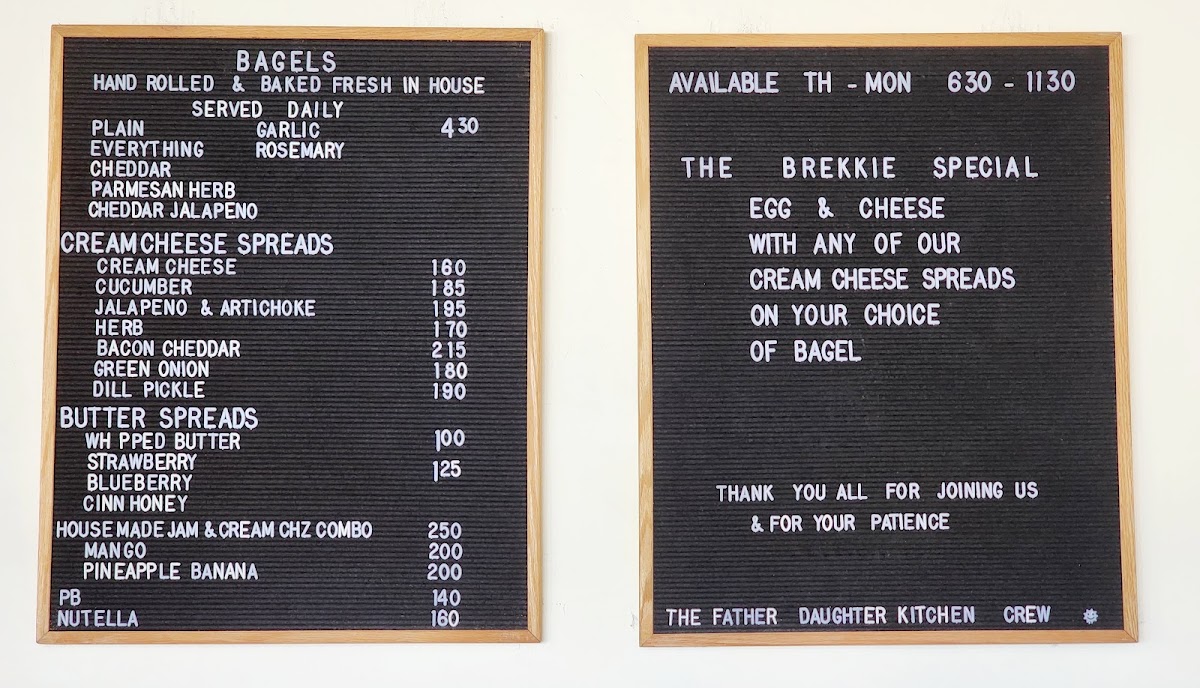 BAGELS
HAND ROLLED & BAKED FRESH IN HOUSE
SERVED DAILY
PLAIN GARLIC 430
EVERYTHING ROSEMARY
CHEDDAR
PARMESAN HERB
CHEDDAR JALAPENO
CREAM CHEESE SPREADS
CREAM CHEESE 160
CUCUMBER 185
JALAPENO & ARTICHOKE 195
HERB 170
BACON CHEDDAR 215
GREEN ONION 180
DILL PICKLE 190
BUTTER SPREADS
WH PPED BUTTER 100
STRAWBERRY 125
BLUEBERRY
CINN HONEY
HOUSE MADE JAM & CREAM CHZ COMBO 250
MANGO 200
PINEAPPLE BANANA 200
PB 140
NUTELLA 160
AVAILABLE TH - MON 630 - 1130
THE BREKKIE SPECIAL
EGG & CHEESE
WITH ANY OF OUR
CREAM CHEESE SPREADS
ON YOUR CHOICE
OF BAGEL
THANK YOU ALL FOR JOINING US
& FOR YOUR PATIENCE
THE FATHER DAUGHTER KITCHEN CREW